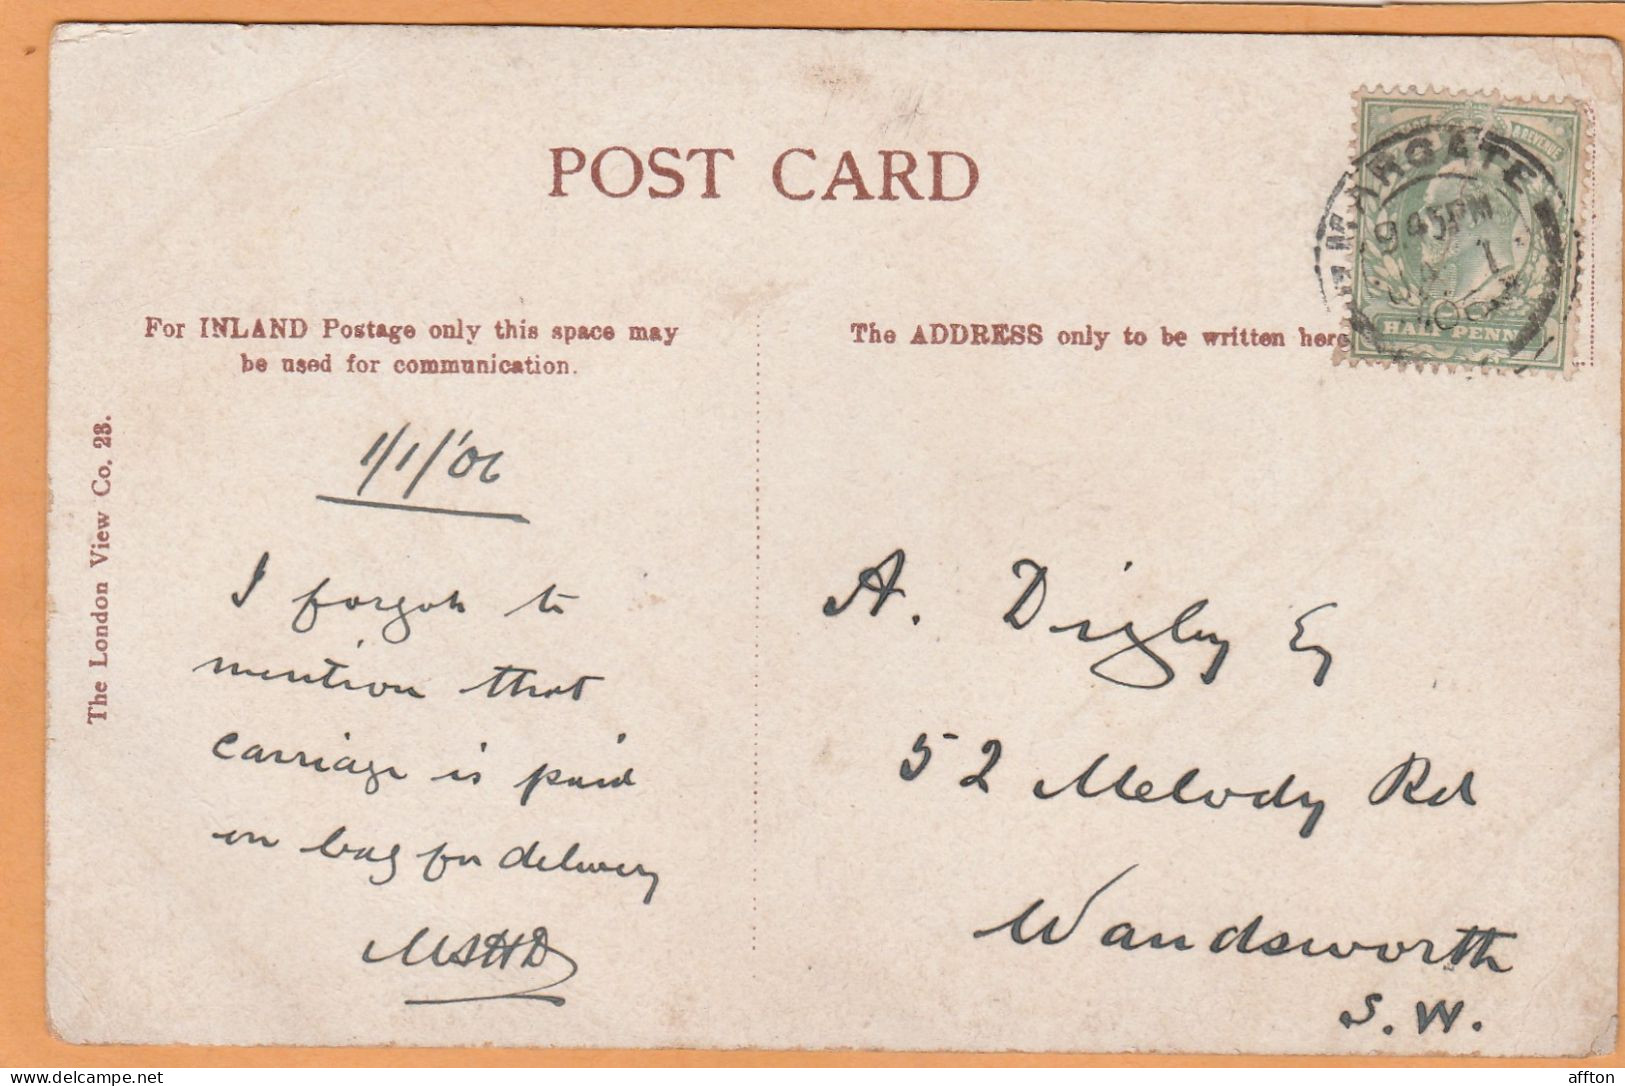 POST CARD
For INLAND Postage only this space may
be used for communication.
The ADDRESS only to be written here
The London View Co. 23.
MARGATE
9 45PM
JA 1
06
& REVENUE
HALFPENNY
1/1/'06
I forgot to
mention that
carriage is paid
on bag for delivery
A. Digby Esq
52 Melody Rd
Wandsworth
S.W.
delcampe.net
affton